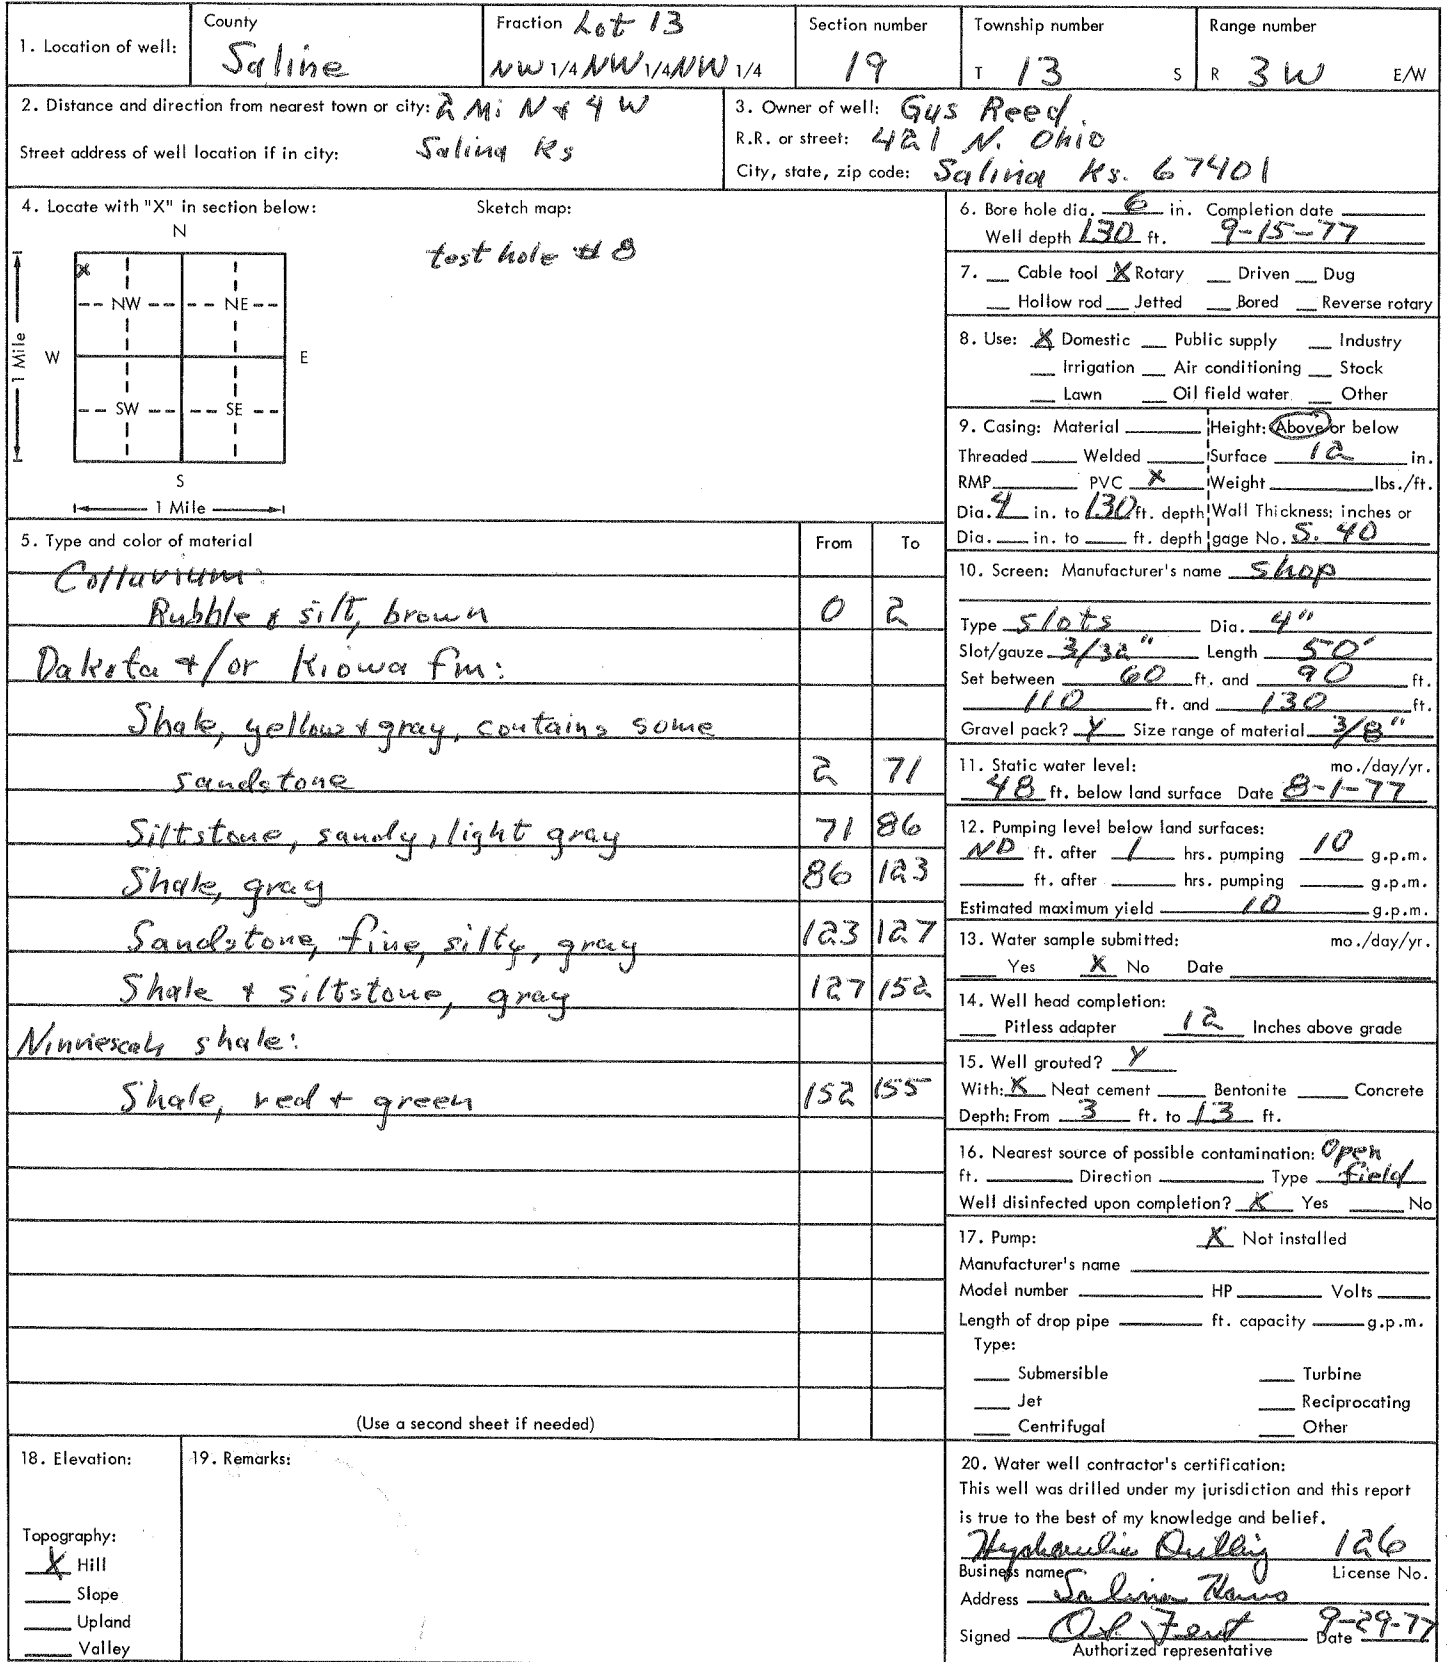 1. Location of well:
County
Saline
Fraction Lot 13
NW 1/4 NW 1/4 NW 1/4
Section number
19
Township number
T 13 S
Range number
R 3W E/W
2. Distance and direction from nearest town or city: 2 Mi N & 4 W
Street address of well location if in city: Salina Ks
3. Owner of well: Gus Reed
R.R. or street: 421 N. Ohio
City, state, zip code: Salina Ks. 67401
4. Locate with "X" in section below:
Sketch map:
test hole # 8
N
X
NW NE
W E
SW SE
S
1 Mile
1 Mile
5. Type and color of material From To
Colluvium:
Rubble & silt, brown 0 2
Dakota &/or Kiowa fm:
Shale, yellow & gray, contains some
sandstone 2 71
Siltstone, sandy, light gray 71 86
Shale, gray 86 123
Sandstone, fine, silty, gray 123 127
Shale & siltstone, gray 127 152
Ninnescah shale:
Shale, red & green 152 155
(Use a second sheet if needed)
6. Bore hole dia. 6 in. Completion date
Well depth 130 ft. 9-15-77
7. Cable tool X Rotary Driven Dug
Hollow rod Jetted Bored Reverse rotary
8. Use: X Domestic Public supply Industry
Irrigation Air conditioning Stock
Lawn Oil field water Other
9. Casing: Material Height: Above or below
Threaded Welded Surface 12 in.
RMP PVC X Weight lbs./ft.
Dia. 4 in. to 130 ft. depth Wall Thickness: inches or
Dia. in. to ft. depth gage No. S. 40
10. Screen: Manufacturer's name shop
Type slots Dia. 4"
Slot/gauze 3/32" Length 50'
Set between 60 ft. and 90 ft.
110 ft. and 130 ft.
Gravel pack? Y Size range of material 3/8"
11. Static water level: mo./day/yr.
48 ft. below land surface Date 8-1-77
12. Pumping level below land surfaces:
ND ft. after 1 hrs. pumping 10 g.p.m.
ft. after hrs. pumping g.p.m.
Estimated maximum yield 10 g.p.m.
13. Water sample submitted: mo./day/yr.
Yes X No Date
14. Well head completion:
Pitless adapter 12 Inches above grade
15. Well grouted? Y
With: X Neat cement Bentonite Concrete
Depth: From 3 ft. to 13 ft.
16. Nearest source of possible contamination: Open
ft. Direction Type field
Well disinfected upon completion? X Yes No
17. Pump: X Not installed
Manufacturer's name
Model number HP Volts
Length of drop pipe ft. capacity g.p.m.
Type:
Submersible Turbine
Jet Reciprocating
Centrifugal Other
18. Elevation:
Topography:
X Hill
Slope
Upland
Valley
19. Remarks:
20. Water well contractor's certification:
This well was drilled under my jurisdiction and this report
is true to the best of my knowledge and belief.
Hydraulic Drilling 126
Business name License No.
Address Salina Kans
Signed Fent 9-29-77 Date
Authorized representative